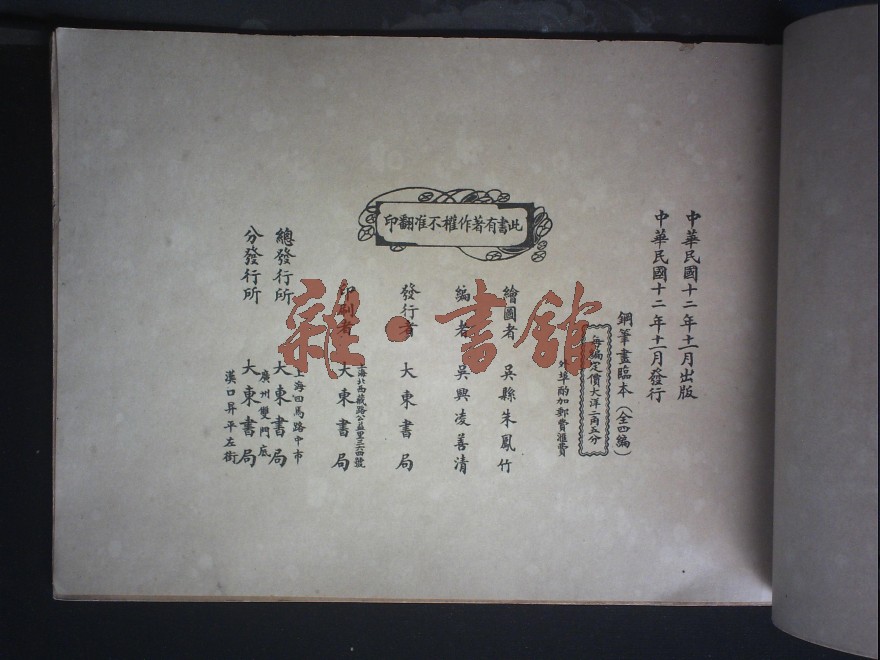 中華民國十二年十一月出版
中華民國十二年十一月發行
鋼筆畫臨本（全四編）
每編定價大洋二角五分
外埠酌加郵費滙費
此書有著作權不准翻印
繪圖者 吳縣朱鳳竹
編者 吳興凌善清
發行者 大東書局
印刷者 大東書局
上海北西藏路公益里三六四號
總發行所 大東書局
上海四馬路中市
分發行所 大東書局
廣州雙門底
漢口昇平左街
雜·書館